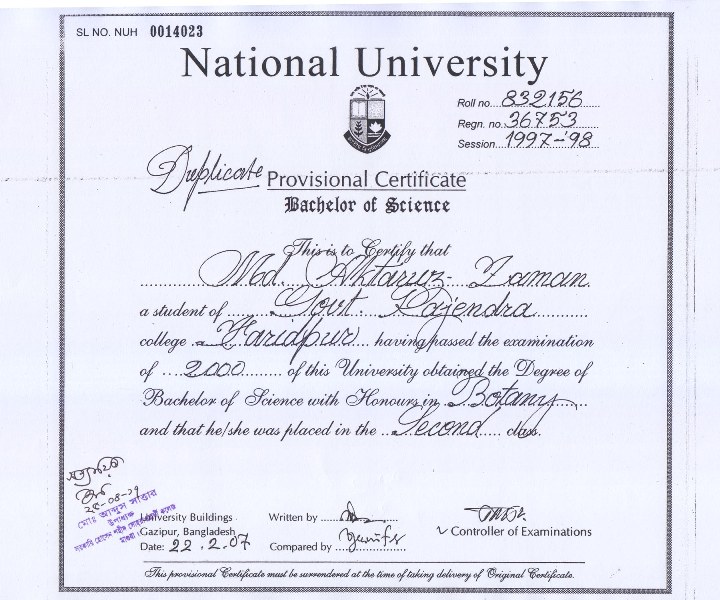 SL NO. NUH 0014023
National University
Roll no. 832156
Regn. no. 36753
Session 1997-'98
Duplicate
Provisional Certificate
Bachelor of Science
This is to Certify that
Md. Aktaruz-Zaman
a student of Govt. Rajendra
college Faridpur having passed the examination
of 2000 of this University obtained the Degree of
Bachelor of Science with Honours in Botany
and that he/she was placed in the Second class.
মোঃ আব্দুস সাত্তার
উপাধ্যক্ষ
University Buildings
Gazipur, Bangladesh
Date: 22.2.07
Written by
Compared by
Controller of Examinations
This provisional Certificate must be surrendered at the time of taking delivery of Original Certificate.